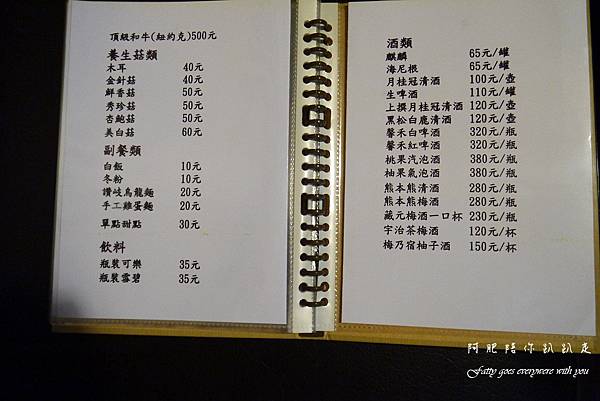 頂級和牛(紐約克)500元
養生菇類
木耳 40元
金針菇 40元
鮮香菇 50元
秀珍菇 50元
杏鮑菇 50元
美白菇 60元
副餐類
白飯 10元
冬粉 10元
讚岐烏龍麵 20元
手工雞蛋麵 20元
單點甜點 30元
飲料
瓶裝可樂 35元
瓶裝雪碧 35元
酒類
麒麟 65元/罐
海尼根 65元/罐
月桂冠清酒 100元/壺
生啤酒 110元/罐
上撰月桂冠清酒 120元/壺
黑松白鹿清酒 120元/壺
馨禾白啤酒 320元/瓶
馨禾紅啤酒 320元/瓶
桃果汽泡酒 380元/瓶
柚果氣泡酒 380元/瓶
熊本熊清酒 280元/瓶
熊本熊梅酒 280元/瓶
藏元梅酒一口杯 230元/瓶
宇治茶梅酒 120元/杯
梅乃宿柚子酒 150元/杯
阿肥陪你趴趴走
Fatty goes everywere with you